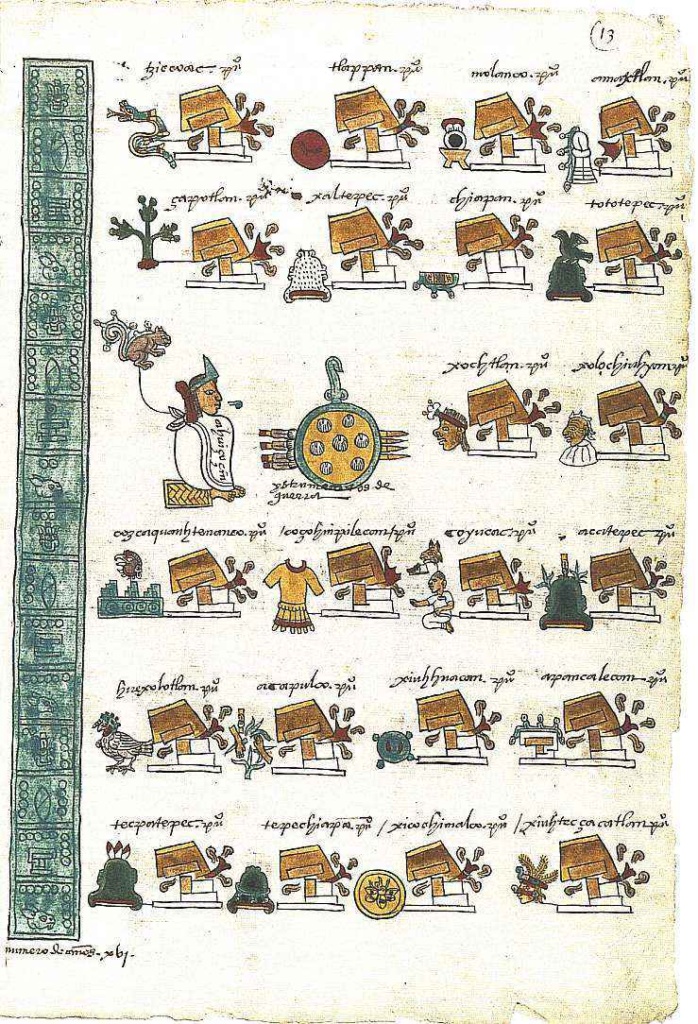 13
tziccoac. puº tlappan. puº molanco. puº amaxtlan. puº
çapotlan. puº xaltepec. puº chiapan. puº tototepec. puº
xochtlan. puº xolochiuhyan. puº
ahuiçoçin
de
guerra
cozcaquauhtenanco. puº / coçohuipilecan. puº coyucac. puº acatepec puº
huexolotlan. puº acapulco. puº xiuhhuacan. puº apancalecan. puº
tecpatepec. puº tepechiapa. puº / xicochimalco. puº / xiuhtecçacatlan. puº
numero de años. xvi.